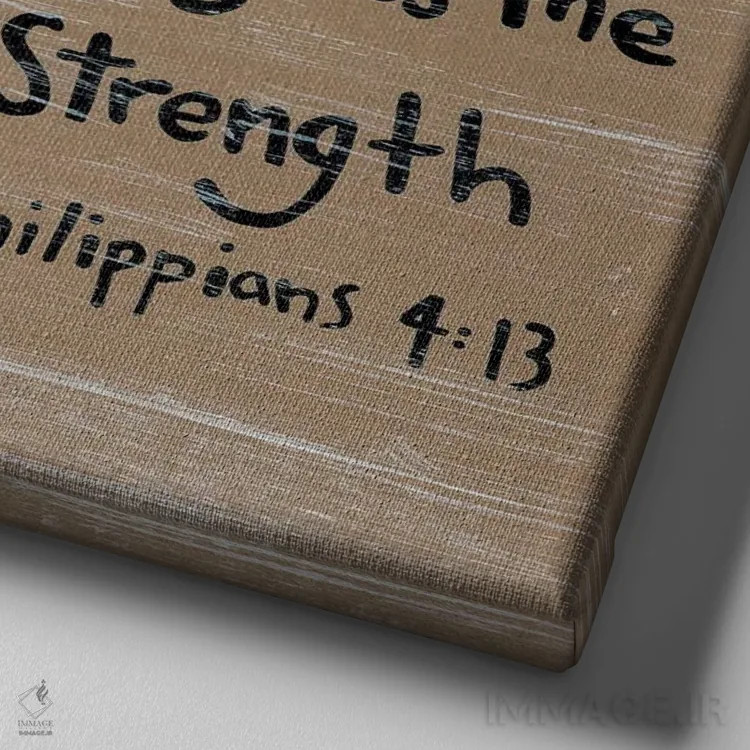 me
Strength
Philippians 4:13
IMMAGE
IMMAGE.IR
IMMAGE.IR